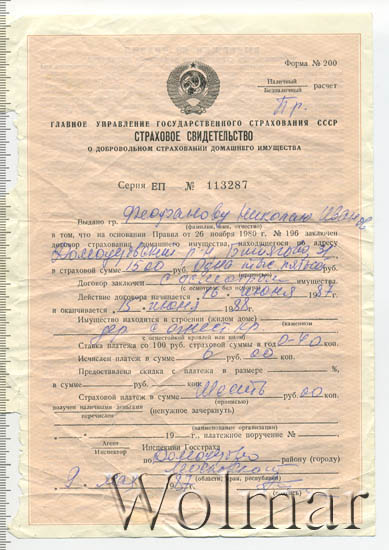 Форма № 200
Наличный
Безналичный расчет
Пр.
ГЛАВНОЕ УПРАВЛЕНИЕ ГОСУДАРСТВЕННОГО СТРАХОВАНИЯ СССР
СТРАХОВОЕ СВИДЕТЕЛЬСТВО
О ДОБРОВОЛЬНОМ СТРАХОВАНИИ ДОМАШНЕГО ИМУЩЕСТВА
Серия ЕП № 113287
Выдано гр. Феофанову Николаю
(фамилия, имя, отчество)
в том, что на основании Правил от 26 ноября 1980 г. № 196 заключен
договор страхования домашнего имущества, находящегося по адресу
р-н
в страховой сумме 1500 руб.
Договор заключен с осмотром имущества
(с осмотром, без осмотра)
Действие договора начинается 16 июня 1987 г.
и оканчивается 15 июня 1988 г.
Имущество находится в строении (жилом доме)
(каменном
дер с огнест кр
с огнестойкой кровлей или иной)
Ставка платежа со 100 руб. страховой суммы в год 0-40 коп.
Исчислен платеж в сумме 6 руб. 00 коп.
Предоставлена скидка с платежа в размере %,
в сумме руб. коп.
Страховой платеж в сумме Шесть руб. 00 коп.
(прописью)
получен наличными деньгами
перечислен (ненужное зачеркнуть)
(наименование организации)
19 г., платежное поручение №
Агент
Инспектор Инспекции Госстраха
по Домодедово району (городу)
Московской
(области, края, республики)
9 мая 1987 г.
(подпись)
Wolmar